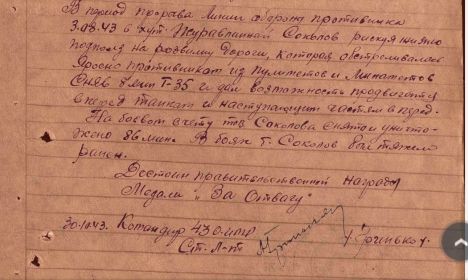 В период прорыва линии обороны противника
3.08.43 в хут. Журавлиный Соколов рискуя жизнью
подполз на развилку дороги, которая обстреливалась
Яросно противником из пулеметов и минометов
Сняв 8 мин Т-35 и дал возможность продвигатся
вперед танкам и наступающим частям в перед.
На боевом счету тов Соколова снятои уничто-
жено 86 мин. В бояж т. Соколов был тяжело
ранен.
Достоин правительственной награды
Медали "За Отвагу"
30.10.43. Командир 430
Ст. Л-т